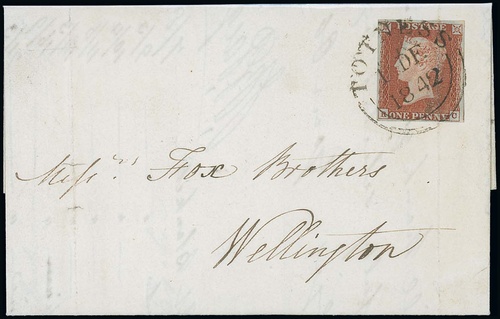 POSTAGE
TOTNESS
1 DE
1842
ONE PENNY
Messrs. Fox Brothers
Wellington